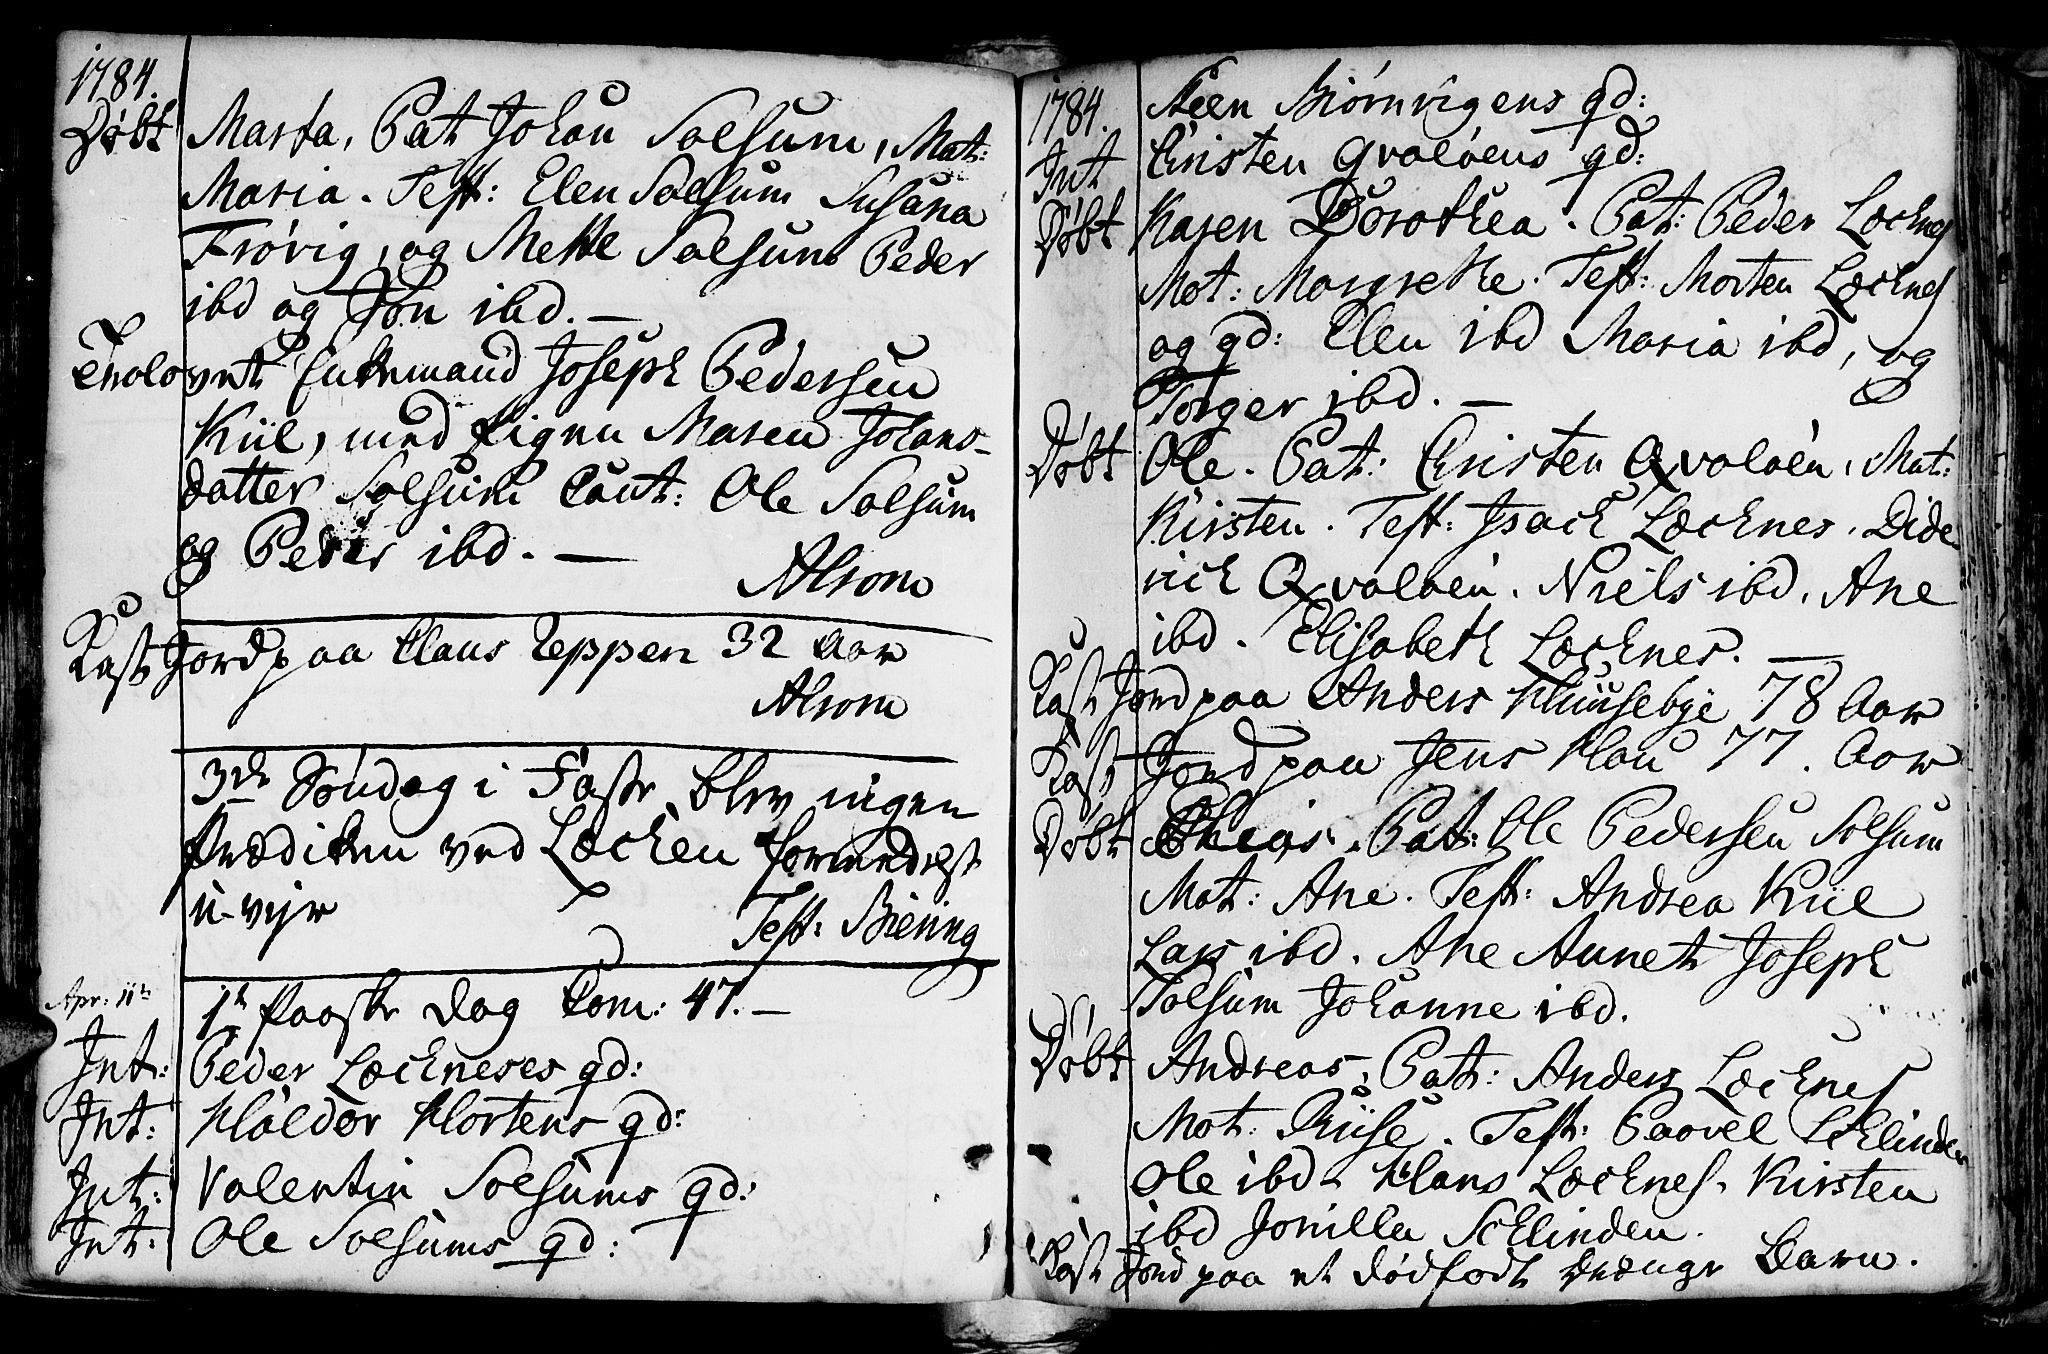 1784.
Døbt Marta, Pat Johan Solsum, Mat:
Maria. Test: Elen Solsum Susana
Frøvig, og Mette Solsum Peder
ibd og Jon ibd. —
Trolovet Enkemand Joseph Pedersen
Kiil, med Pigen Maren Johans-
datter Solsum Caut: Ole Solsum
og Peder ibd. —
Alsom
Kast Jord paa Claus Zeppen 32 Aar
Alsom
3de Søndag i Faste blev ingen
Prædiken ved Lecken formedelst
u-vejr
Test: Biering
Apr: 11te 1te Paaske Dag Com: 47. —
Int: Peder Leckneses qd:
Int: Haldor Hortens qd:
Int: Valentin Solsums qd:
Int: Ole Solsums qd:
1784. Steen Biørnvigens qd:
Int Cristen Qvaløens qd:
Døbt Karen Dorothea. Pat: Peder Lecknes
Mot: Margrethe. Test: Morten Lecknes
og qd: Elen ibd Maria ibd, og
Torger ibd. —
Døbt Ole. Pat: Cristen Qvaløen, Mat:
Kirsten. Test: Isach Lecknes. Dide-
rich Qvaløen. Niels ibd. Ane
ibd. Elisabeth Lecknes. —
Kast Jord paa Anders Huusebye 78 Aar
Kast Jord paa Jens Hau 77. Aar
Døbt Pat: Ole Pedersen Solsum
Mot: Ane. Test: Andrea Kiil
Lars ibd. Ane Aunet Joseph
Solsum Johanne ibd.
Døbt Andreas, Pat: Anders Lecknes
Mot: Test: Paavel Schlinden
Ole ibd Hans Lecknes. Kirsten
ibd Jonilla Schlinden.
Kast Jord paa et dødfødt Drænge Barn.